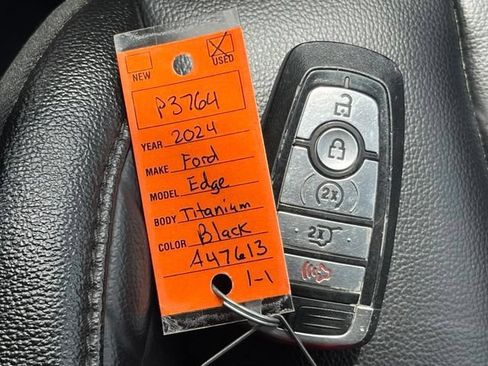 NEW USED
P3764
YEAR 2024
MAKE Ford
MODEL Edge
BODY Titanium
COLOR Black
A47613
1-1
2x
2x